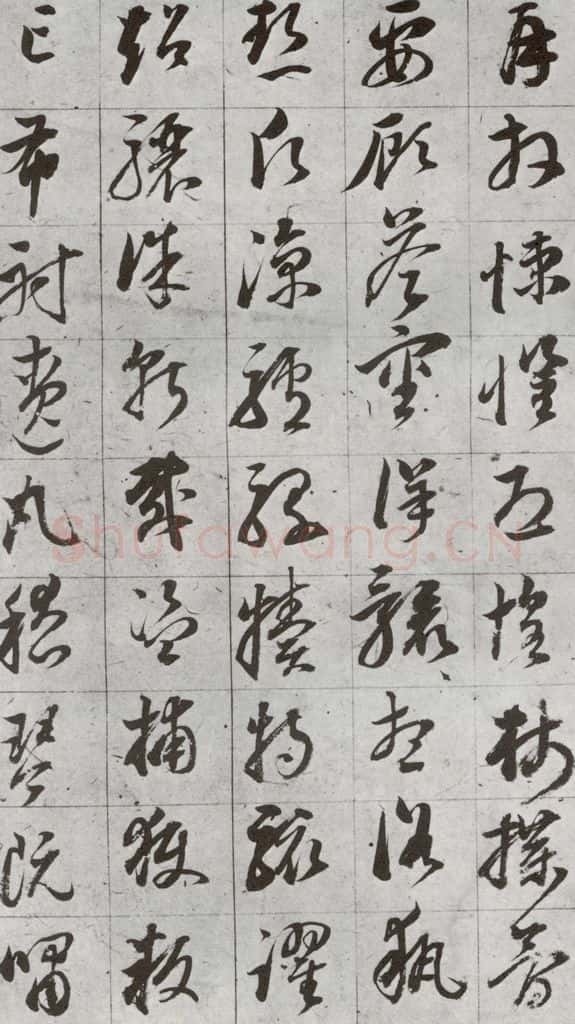 再拜悚懼恐惶牋牒簡
要顧答審詳骸想浴執
熱願涼驢騾犢特駭躍
超驤誅斬賊盜捕獲叛
亡布射遼丸嵇琴阮嘯
Shufawang.CN